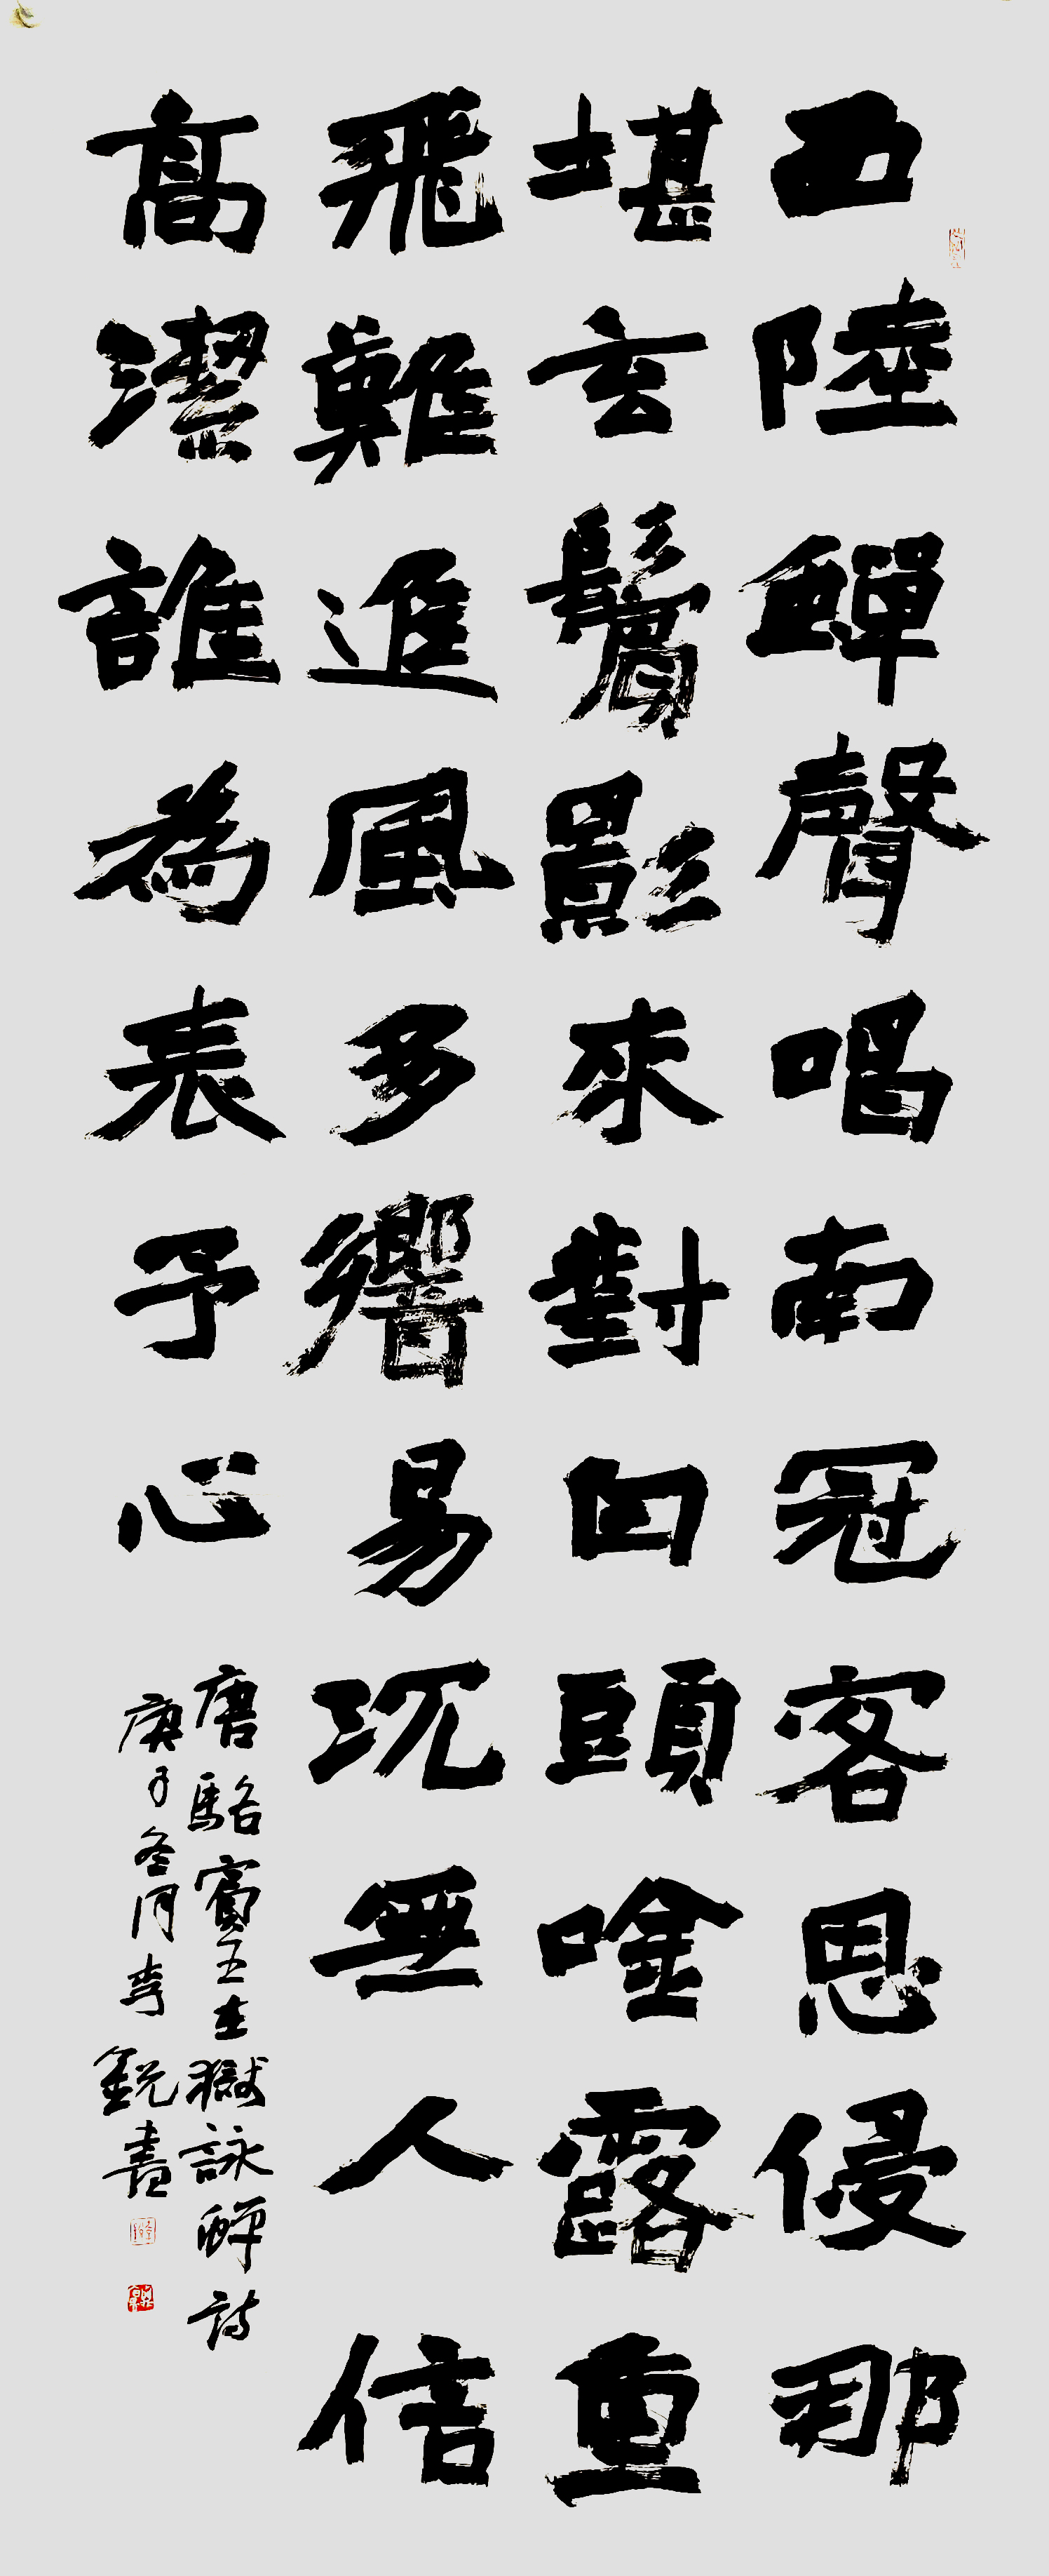 西陸蟬聲唱南冠客思侵那
堪玄鬢影來對白頭唫露重
飛難進風多響易沉無人信
高潔誰為表予心
唐駱賓王在獄詠蟬詩
庚子冬月李銳書